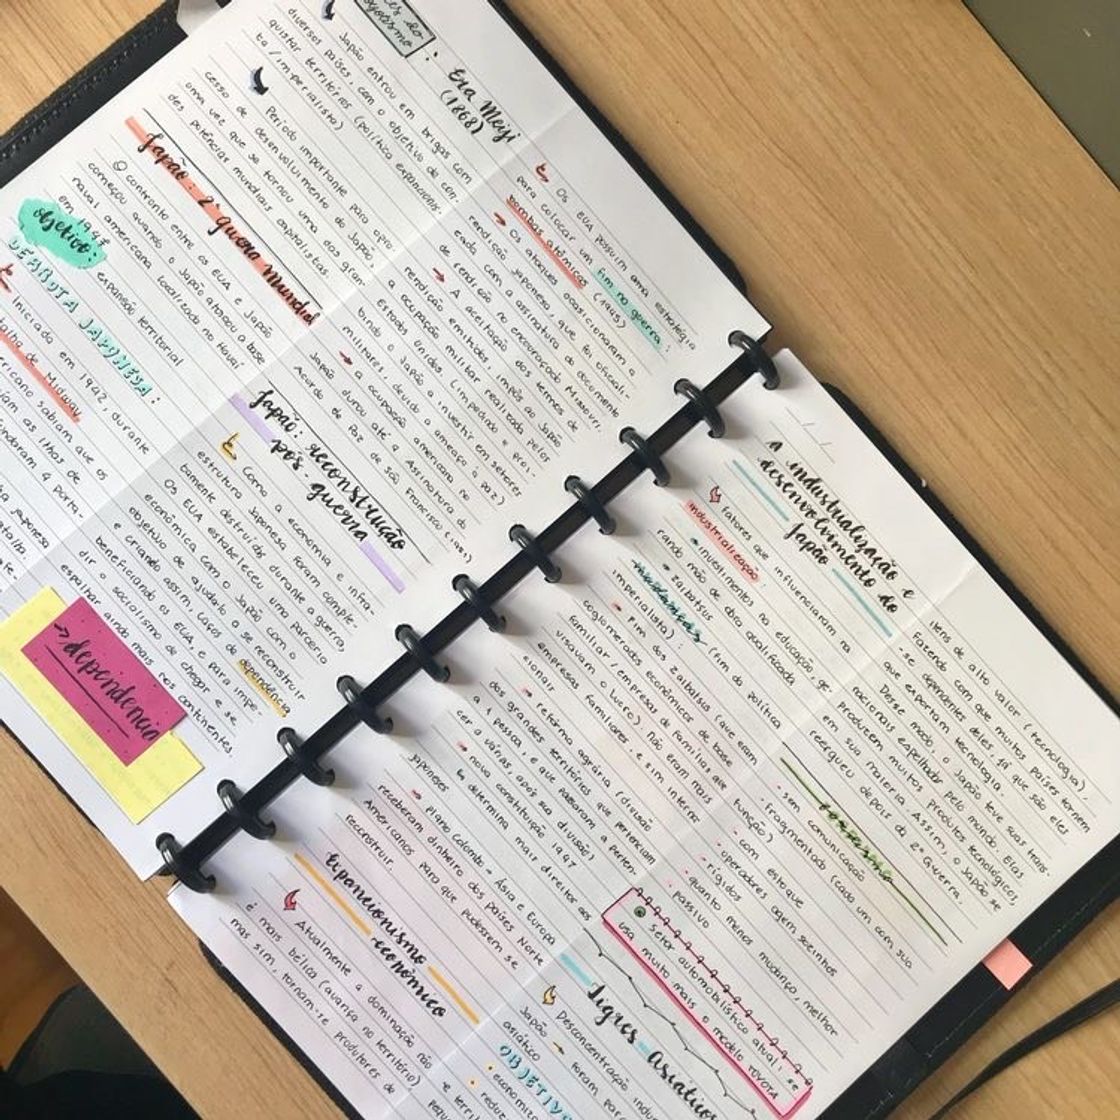 Era Meiji
(1868)
Japão entrou em brigas com
diversos países, com o objetivo de con-
quistar territórios (política expancionis-
ta/imperialista)
Período importante para o pro
cesso de desenvolvimento do Japão,
uma vez que se tornou uma das gran-
des potências mundiais capitalistas
Japão: 2ª guerra mundial
O confronto entre os EUA e Japão
começou quando o Japão atacou a base
naval americana localizada no Havaí
em
objetivo: expansão territorial
DERROTA JAPONESA:
Iniciada em 1942, durante
Batalha de Midway
ricano sabiam que os
jam as ilhas de
ndaram 4 porta-
japonesa
batalha
Os EUA possuim uma estratégia
para colocar um fim no guerra:
bombas atômicas (1945)
Os ataques ocasionaram a
rendição japonesa, que foi oficiali-
zada com a assinatura do documento
de rendição no encouraçado Missouri.
A aceitação dos termos de
rendição emitidos impôs ao Japão
a ocupação militar realizada pelos
Estados Unidos (impedindo e proi-
bindo o Japão a investir em setores
militares, devido a ameaça a paz)
a ocupação americana no
Japão durou até a Assinatura do
Acordo de Paz de São Francisco (1951)
Japão: reconstrução
pós-guerra
Como a economia e infra-
estrutura Japonesa foram comple-
tamente destruída durante a guerra,
Os EUA estabeleceu uma parceria
econômica com o Japão com o
objetivo de ajudar a se reconstruir
e criando assim, laços de dependência
beneficiando os EUA, e para impe-
dir o socialismo de chegar e se
espalhar ainda mais nos continentes.
→dependencia
A industrialização e
desenvolvimento do
Japão
Fatores que influenciaram na
industrialização
• investimentos na educação, ge
rando mão de obra qualificada
• zaibatsus
mudanças (fim da política
imperialista)
Fim dos zaibatsus (que eram
coglomerados econômicos de base
familiar/empresas de famílias que
visavam o lucro) não eram mais
empresas familiares, e sim interna
cionais
retorma agrária (divisão
dos grandes territórios que pertenciam
a 1 pessoa, e que passaram a perten-
cer a várias, após sua divisão)
nova constituição 1947
determina mais direitos aos
japoneses
plano Colombo - Ásia e Europa
receberam dinheiro dos países Norte
Americanos para que pudessem se
reconstruir.
Expancionismo
econômico
Atualmente a dominação não
é mais bélica (avança no território)
mas sim, tornam-se produtores de
itens de alto valor (tecnologia),
Fazendo com que muitos países tornem
-se dependentes deles, já que são eles
que exportam tecnologia.
Desse modo, o Japão teve suas trans.
nacionais espelhada pelo mundo. Elas
produzem muitos produtos tecnológicos,
em sua maioria. Assim, o Japão se
reergueu depois da 2ª Guerra.
• sem comunicação
• fragmentado (cada um com sua
função)
• com estoque
• operadores agem sozinhos
• rígidos
• quanto menos mudança, melhor
• passivo
Setor automobilístico atual: se
usa muito mais o modelo TOYOTA
Tigres Asiáticos
Desconcentração indus
Japão → foram par
asiático
OBJETIVO
• economiz
• reduz